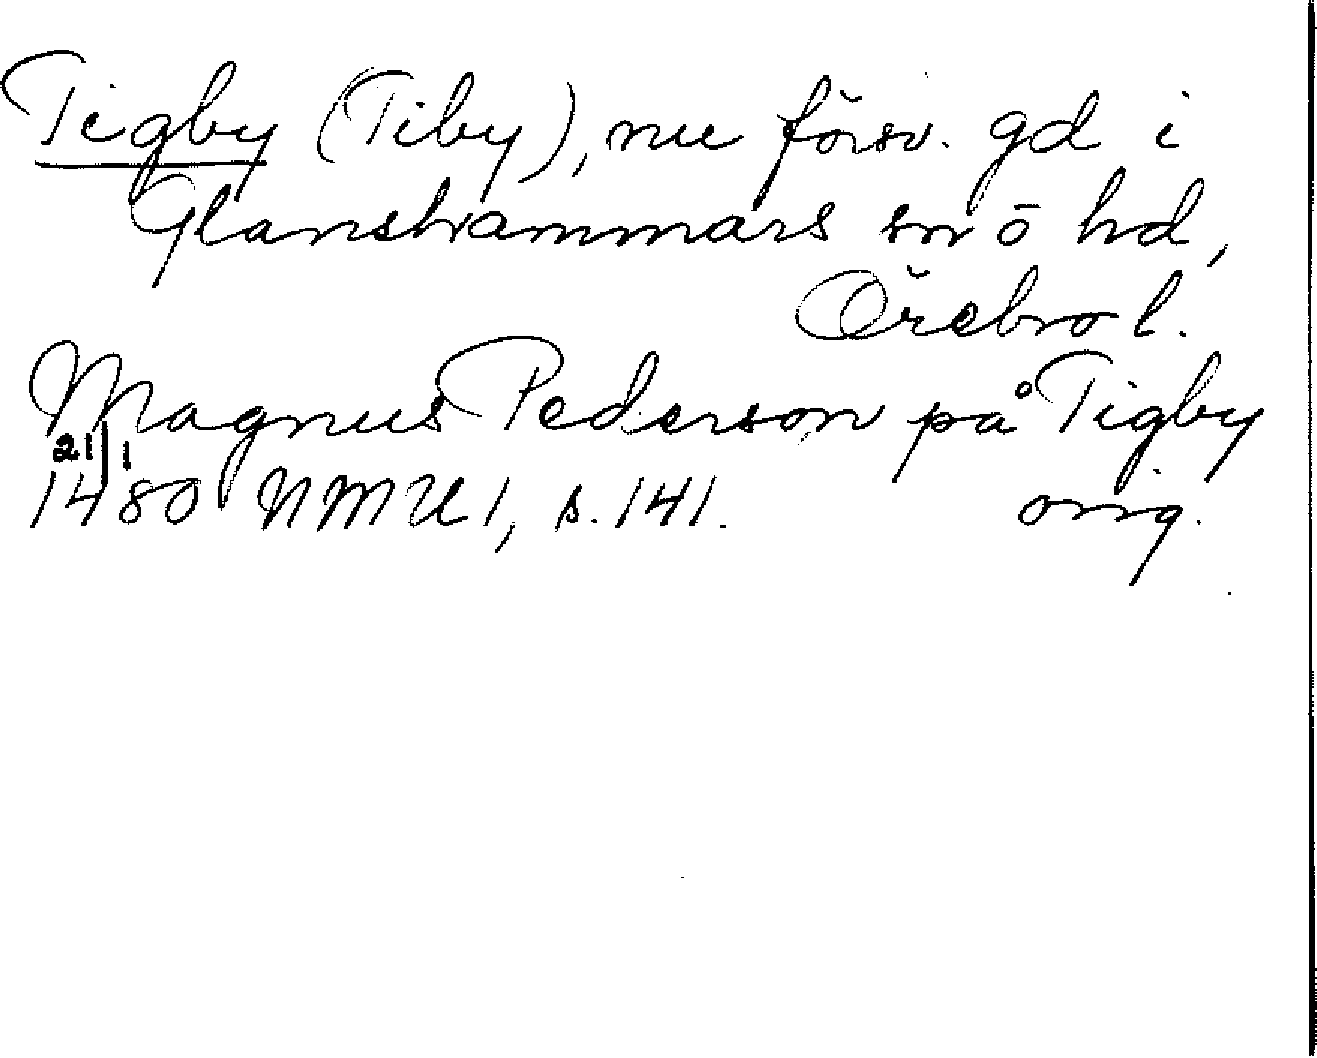 Tigby (Tiby), nu försv. gd i
Glanshammars sn ō hd,
Örebro l.
Magnus Pederson på Tigby
21/1
1480 NMU 1, s. 141. orig.